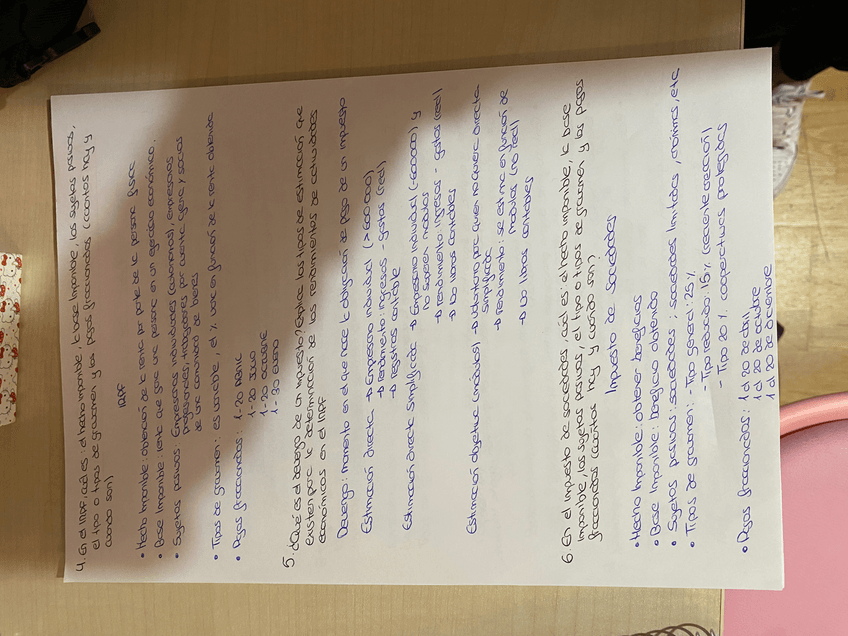 4. En el IRPF, cuál es: el hecho imponible, la base imponible, los sujetos pasivos,
el tipo o tipos de gravamen y los pagos fraccionados (cuantos hay y
cuando son)
IRPF
• Hecho imponible: obtención de la renta por parte de la persona física
• Base imponible: renta que gana una persona en un ejercicio económico.
• Sujetos pasivos: Empresarios individuales (autonomos), empresarios
profesionales, trabajadores por cuenta ajena y socios
de una comunidad de bienes
• Tipos de gravamen: es variable, el % varía en función de la renta obtenida
• Pagos fraccionados: 1-20 Abril
1-20 Julio
1-20 octubre
1-30 enero
5. ¿Qué es el devengo de un impuesto? Explica los tipos de estimación que
existen para la determinación de los rendimientos de actividades
económicas en el IRPF
Devengo: Momento en el que nace la obligación de pago de un impuesto
Estimación directa → Empresario individual (>600000)
→ Rendimiento: ingresos - gastos (real)
→ Registros contable
Estimación directa simplificada → Empresario individual (-600000) y
no superen modulos
→ Rendimiento: ingresos - gastos (real)
→ No libros contables
Estimación objetiva (modulos) → voluntario para quien no quiera directa
simplificada
→ Rendimiento: se estima en función de
modulos (no real)
→ No libros contables
6. En el impuesto de sociedades, cuál es: el hecho imponible, la base
imponible, los sujetos pasivos, el tipo o tipos de gravamen y los pagos
fraccionados (cuantos hay y cuando son?)
Impuesto de sociedades
• Hecho imponible: obtener beneficios
• Base imponible: Beneficio obtenido
• Sujetos pasivos: sociedades; sociedades limitadas, anónimas, etc
• Tipos de gravamen: - Tipo general: 25%
- Tipo reducido: 15% (reciente creación)
- Tipo 20% cooperativas protegidas
• Pagos fraccionados: 1 al 20 de abril
1 al 20 de octubre
1 al 20 de diciembre